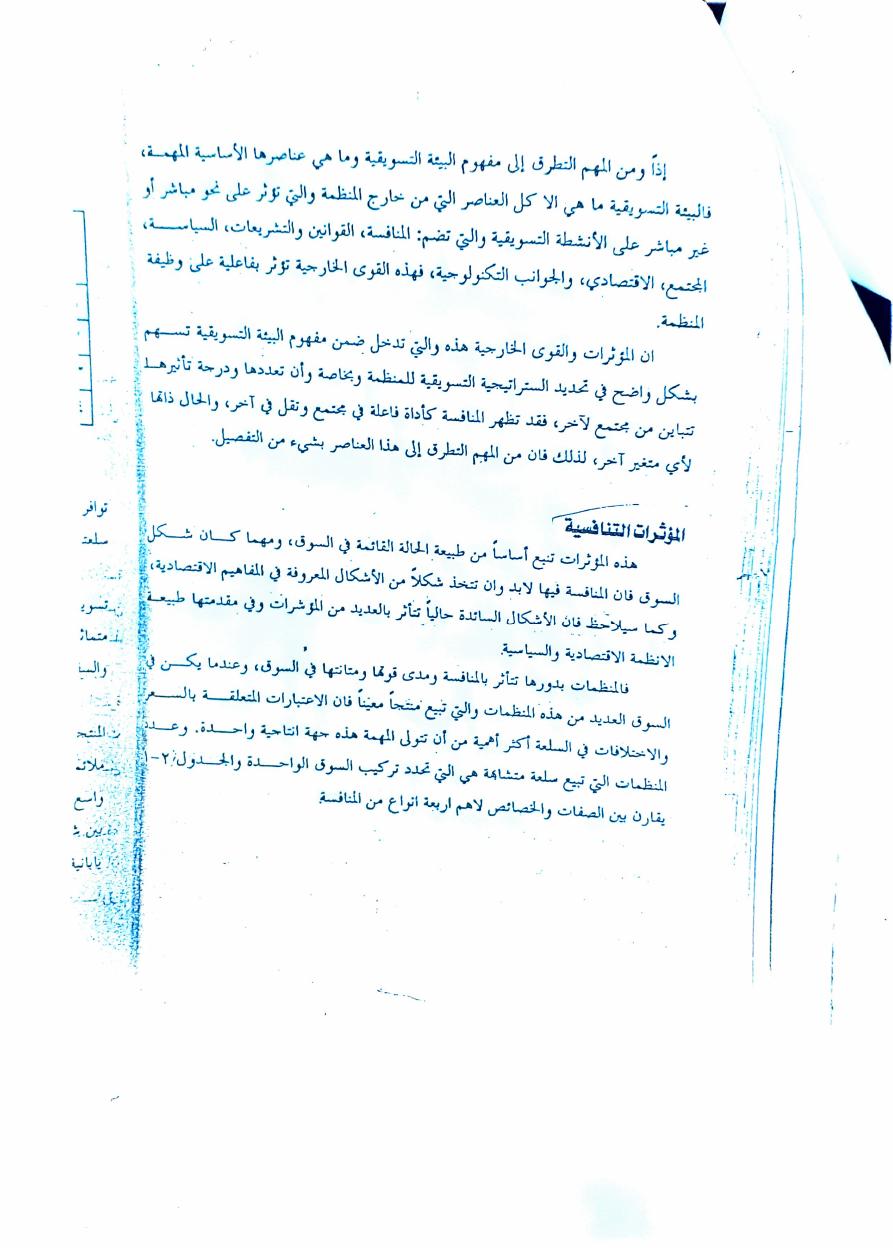 إذاً ومن المهم التطرق إلى مفهوم البيئة التسويقية وما هي عناصرها الأساسية المهمـة،
فالبيئة التسويقية ما هي الا كل العناصر التي من خارج المنظمة والتي تؤثر على نحو مباشر أو
غير مباشر على الأنشطة التسويقية والتي تضم: المنافسة، القوانين والتشريعات، السياســة،
المجتمع، الاقتصادي، والجوانب التكنولوجية، فهذه القوى الخارجية تؤثر بفاعلية على وظيفة
المنظمة.
ان المؤثرات والقوى الخارجية هذه والتي تدخل ضمن مفهوم البيئة التسويقية تســهم
بشكل واضح في تحديد الستراتيجية التسويقية للمنظمة وبخاصة وأن تعددها ودرجة تأثيرهـا
تتباين من مجتمع لآخر، فقد تظهر المنافسة كأداة فاعلة في مجتمع وتقل في آخر، والحال ذاتها
لأي متغير آخر، لذلك فان من المهم التطرق إلى هذا العناصر بشيء من التفصيل.
المؤثرات التنافسية
هذه المؤثرات تنبع أساساً من طبيعة الحالة القائمة في السوق، ومهما كــان شــكل
السوق فان المنافسة فيها لابد وان تتخذ شكلاً من الأشكال المعروفة في المفاهيم الاقتصادية،
وكما سيلاحظ فان الأشكال السائدة حالياً تتأثر بالعديد من المؤشرات وفي مقدمتها طبيعـة
الانظمة الاقتصادية والسياسية.
فالمنظمات بدورها تتأثر بالمنافسة ومدى قوتها ومتانتها في السوق، وعندما يكــن في
السوق العديد من هذه المنظمات والتي تبيع منتجاً معيناً فان الاعتبارات المتعلقــة بالسـعر
والاختلافات في السلعة أكثر أهمية من أن تتولى المهمة هذه جهة انتاجية واحــدة. وعــدد
المنظمات التي تبيع سلعة متشابهة هي التي تحدد تركيب السوق الواحــدة والجــدول ٢-١
يقارن بين الصفات والخصائص لاهم اربعة انواع من المنافسة
توافر
سلعة
واسع